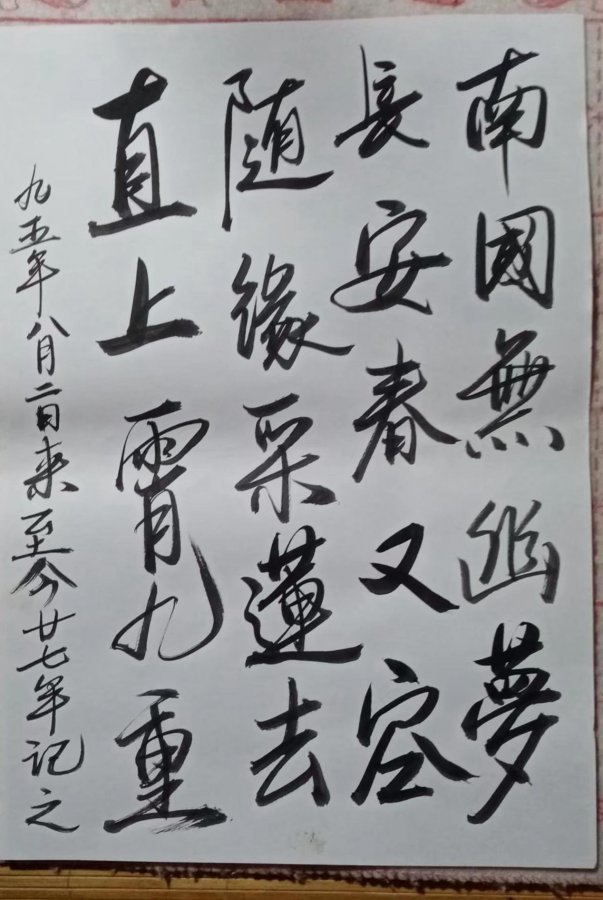 南國無幽夢
長安春又空
随緣采蓮去
直上霄九重
九五年八月二日來至今廿七年記之